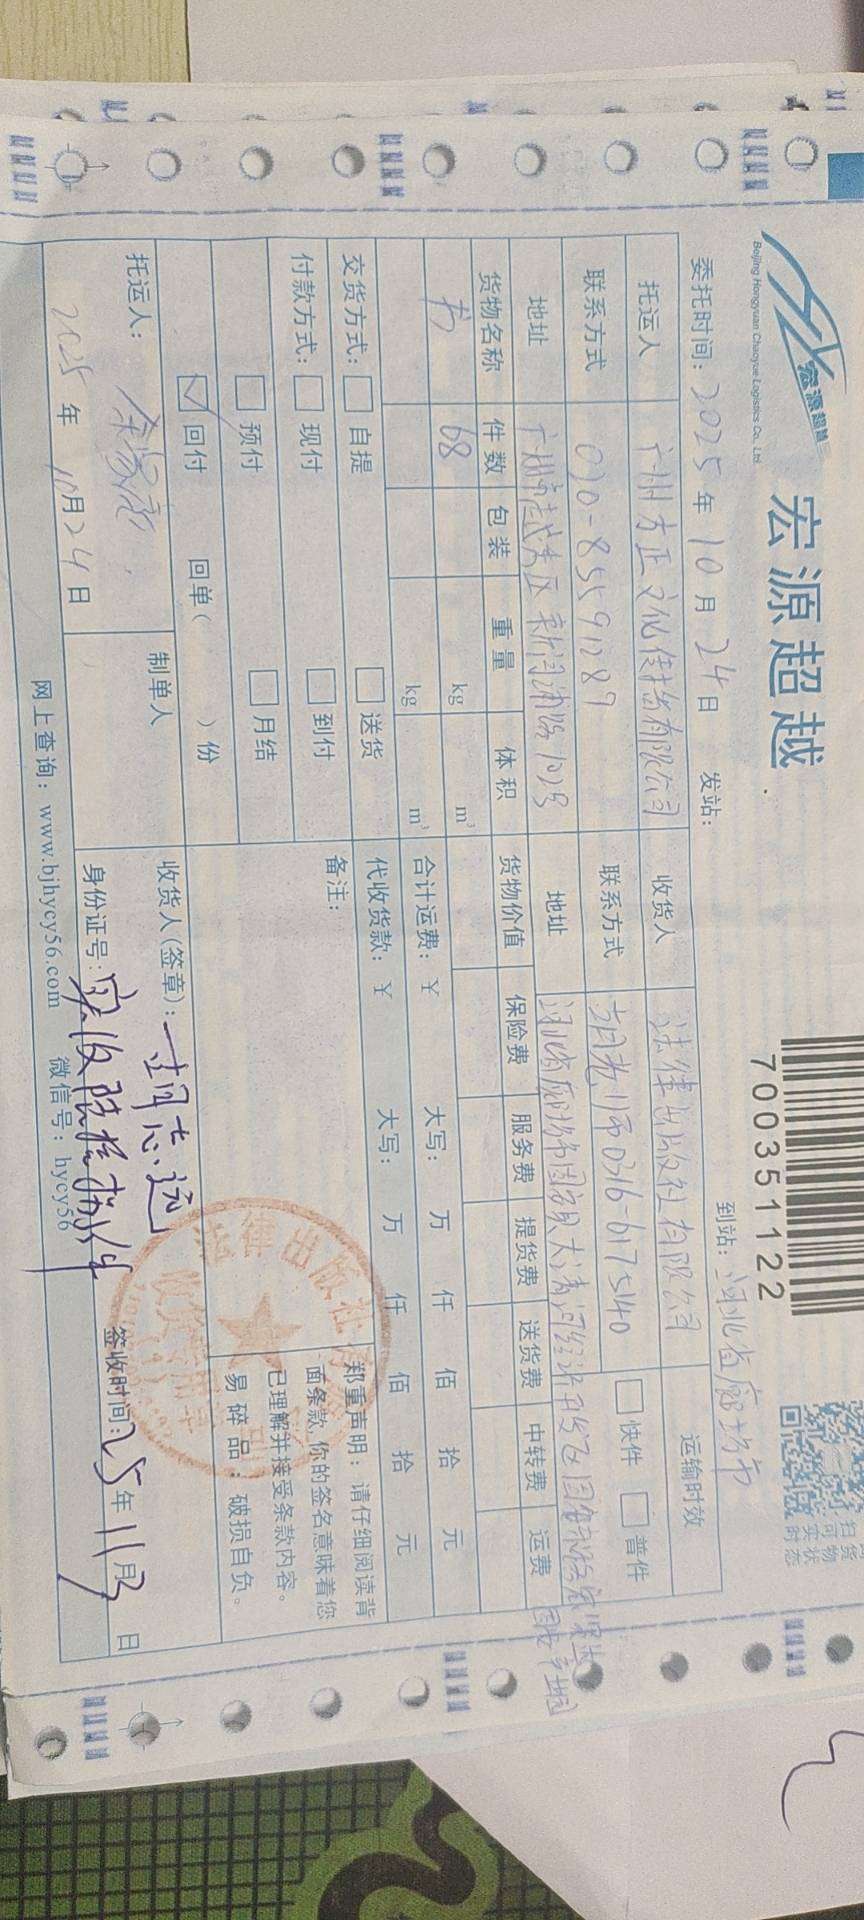 宏源超越
宏源超越
Beijing Hongyuan Chaoyue Logistics Co., Ltd
700351122
委托时间：2025年10月24日 发站： 到站：河北省廊坊市
托运人 广州方正文化传播有限公司 收货人 法律出版社有限公司 运输时效
联系方式 020-85591289 联系方式 胡老师0316-6175140 快件 普件
地址 广州市越秀区 地址 河北省廊坊市固安县大清河经济开发区
货物名称 件数 包装 重量 体积 货物价值 保险费 服务费 提货费 送货费 中转费 运费
书 68 kg m³
kg m³ 合计运费：￥ 大写： 万 仟 佰 拾 元
交货方式： 自提 送货 代收货款：￥ 大写： 万 仟 佰 拾 元
付款方式： 现付 到付 备注：
预付 月结
回付 回单( )份
郑重声明：请仔细阅读背
面条款，你的签名意味着您
已理解并接受条款内容。
易碎品：破损自负。
托运人：
2025年10月24日
制单人
收货人(签章)：胡志远
身份证号：实收 件
签收时间：25年11月3日
网上查询：www.bjhycy56.com 微信号：hycy56